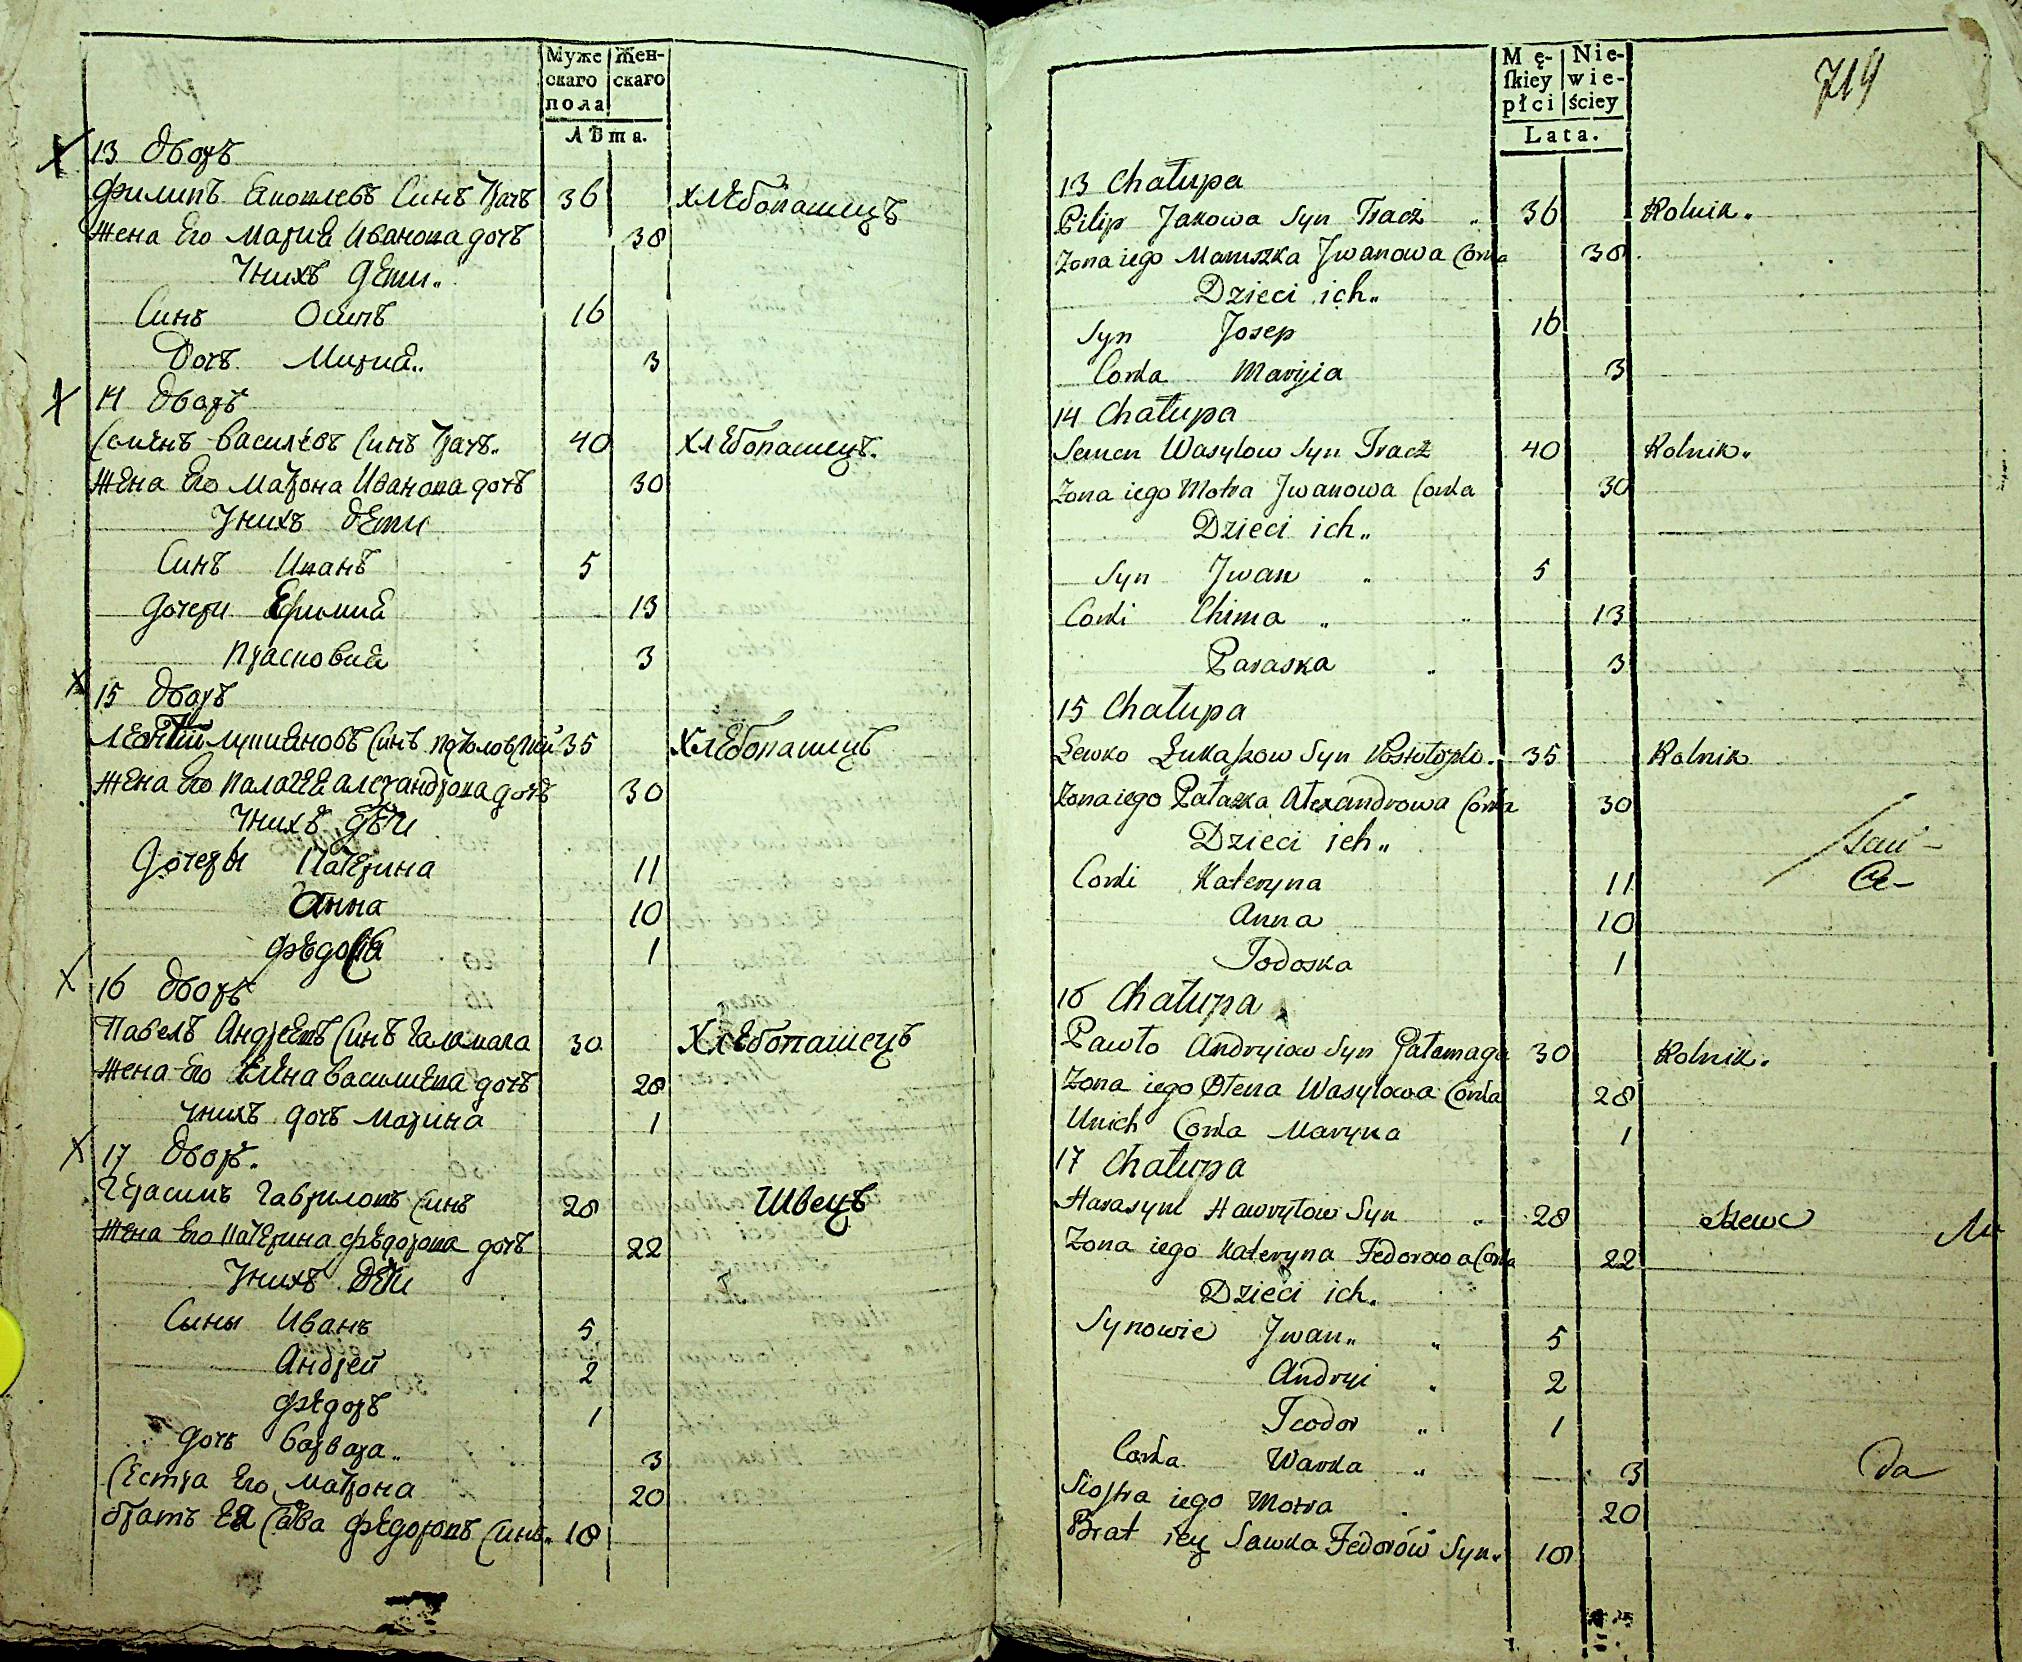 Муже
скаго
пола
Жен-
скаго
Лѣта.
13 дворъ
Филипъ Яковлевъ Синъ Трачъ 36 хлебопашецъ
Жена Его Мария Иванова дочъ 38
Унихъ дети„
Синъ Осипъ 16
Дочъ Мария„ 3
14 дворъ
Семенъ Василевъ Синъ Трачъ. 40 хлебопашецъ.
Жена Его Матрона Иванова дочъ 30
Унихъ дети
Синъ Иванъ 5
дочери Ефимия 13
Прасковия 3
15 дворъ
Леонтий Лукияновъ Синъ 35 хлебопашецъ
Жена Его Палагея Александрова дочъ 30
Унихъ дѣти
Дочеры Катерина 11
Анна 10
Федосия 1
16 дворъ
Павелъ Андреевъ Синъ Галамага 30 Хлебопашецъ
Жена Его Елена Василиева дочъ 28
унихъ дочъ Марина 1
17 дворъ.
Герасимъ Гавриловъ Синъ 28 Швецъ
Жена Его Катерина Федорова дочъ 22
Унихъ Дети
Сыны Иванъ 5
Андрей 2
Федоръ 1
дочъ Варвара„ 3
Сестра Его Матрона 20
братъ Ея Сава Федоровъ Синъ„ 18
Mę-
ſkiey
płci
Nie-
wie-
ściey
Lata.
719
13 Chałupa
Pilip Jakowa Syn Tracz „ 36 Rolnik.
Zona iego Maruszka Jwanowa Corka 38
Dzieci ich„
Syn Josep 16
Corka Maryia 3
14 Chałupa
Semen Wasylow Syn Tracz 40 Rolnik„
Zona iego Motra Jwanowa Corka 30
Dzieci ich„
Syn Jwan „ 5
Corki Chima „ „ 13
Paraska „ 3
15 Chałupa
Lewko Łukaſzow Syn 35 Rolnik
Zona iego Pałazka Alexandrowa Corka 30
Dzieci ich„
Corki Kateryna 11
Anna 10
Todoska 1
16 Chałupa
Pawło Andryiow Syn Gałamaga 30 Rolnik.
Zona iego Ołena Wasylowa Corka 28
Unich Corka Maryna 1
17 Chałupa
Harasym Hawryłow Syn „ 28 Szewc
Zona iego Kateryna Fedorowa Corka 22
Dzieci ich„
Synowie Jwan„ „ 5
Andryi „ 2
Teodor „ 1
Corka Warka „ 3 Da
Sioſtra iego Motra „ 20
Brat iey Sawka Fedorów Syn„ 18